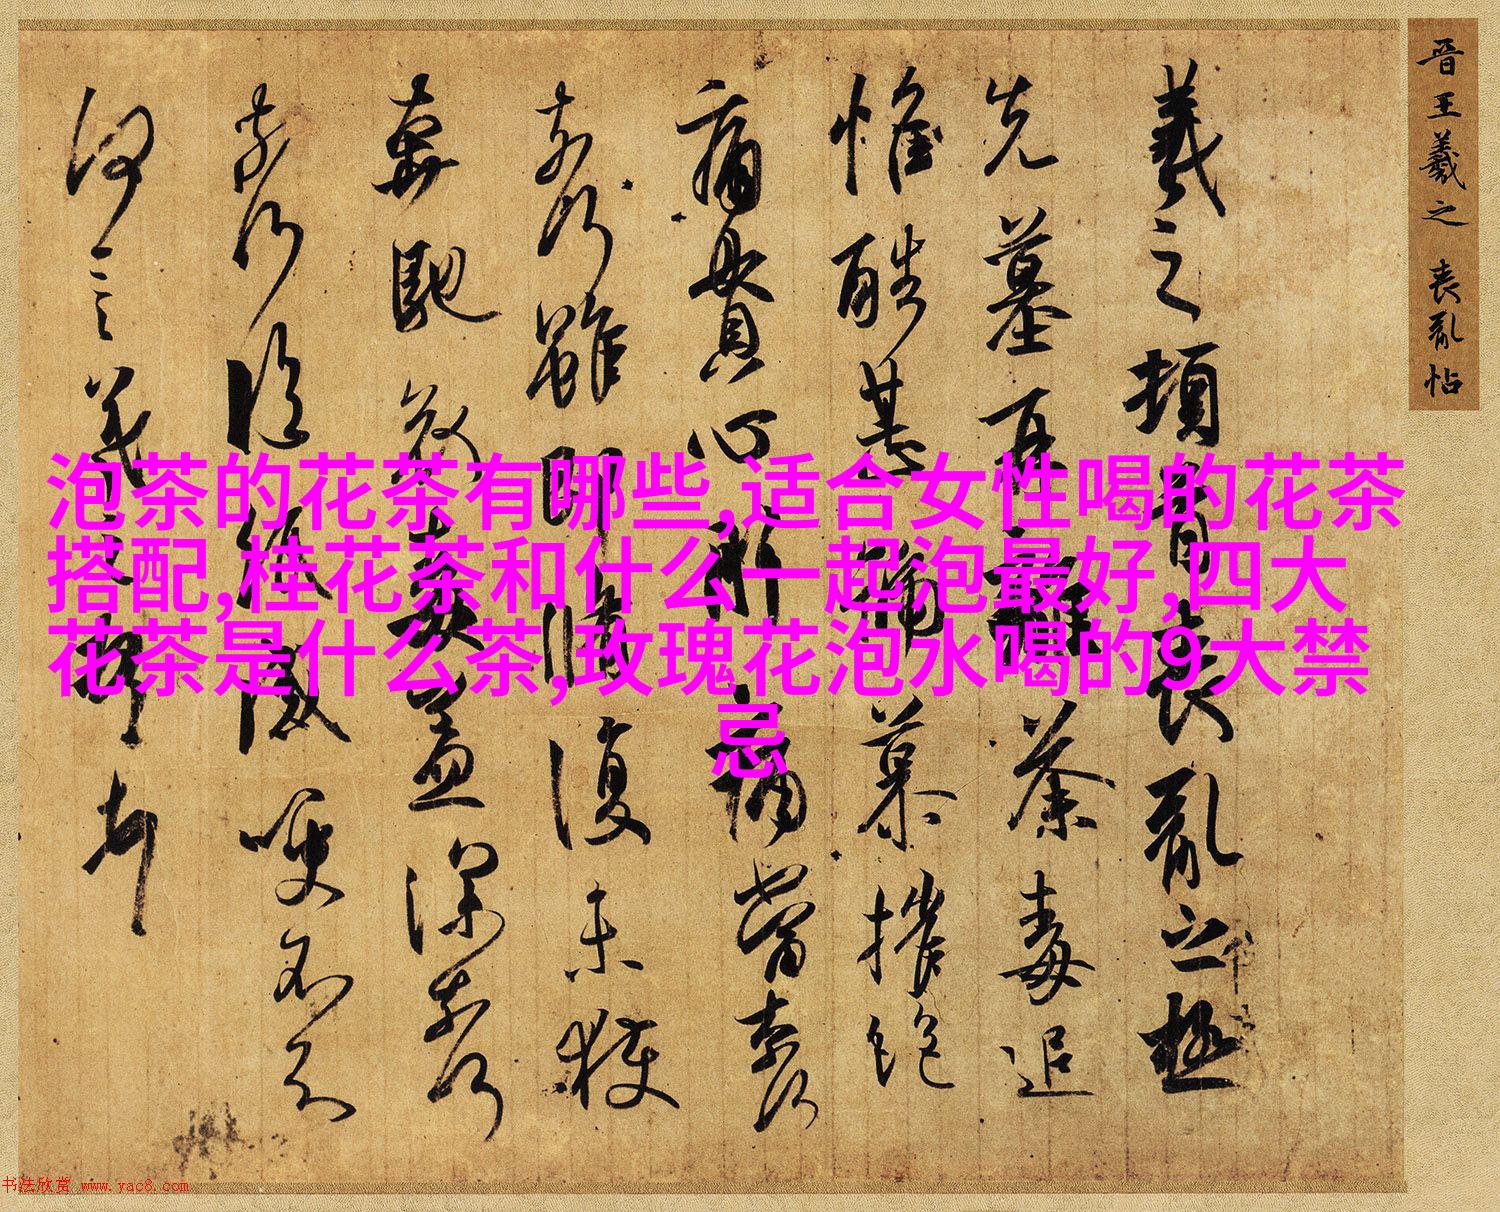 晉王羲之 喪亂帖
羲之頓首喪亂之極
先墓再離荼毒追
惟酷甚號慕摧絕
痛貫心肝痛當奈何
奈何雖即脩復未獲
奔馳哀毒益深奈何
奈何臨紙感哽不知
何言羲之頓首頓首
泡茶的花茶有哪些,适合女性喝的花茶
搭配,桂花茶和什么一起泡最好,四大
花茶是什么茶,玫瑰花泡水喝的9大禁
忌
书法欣赏 www.yac8.com